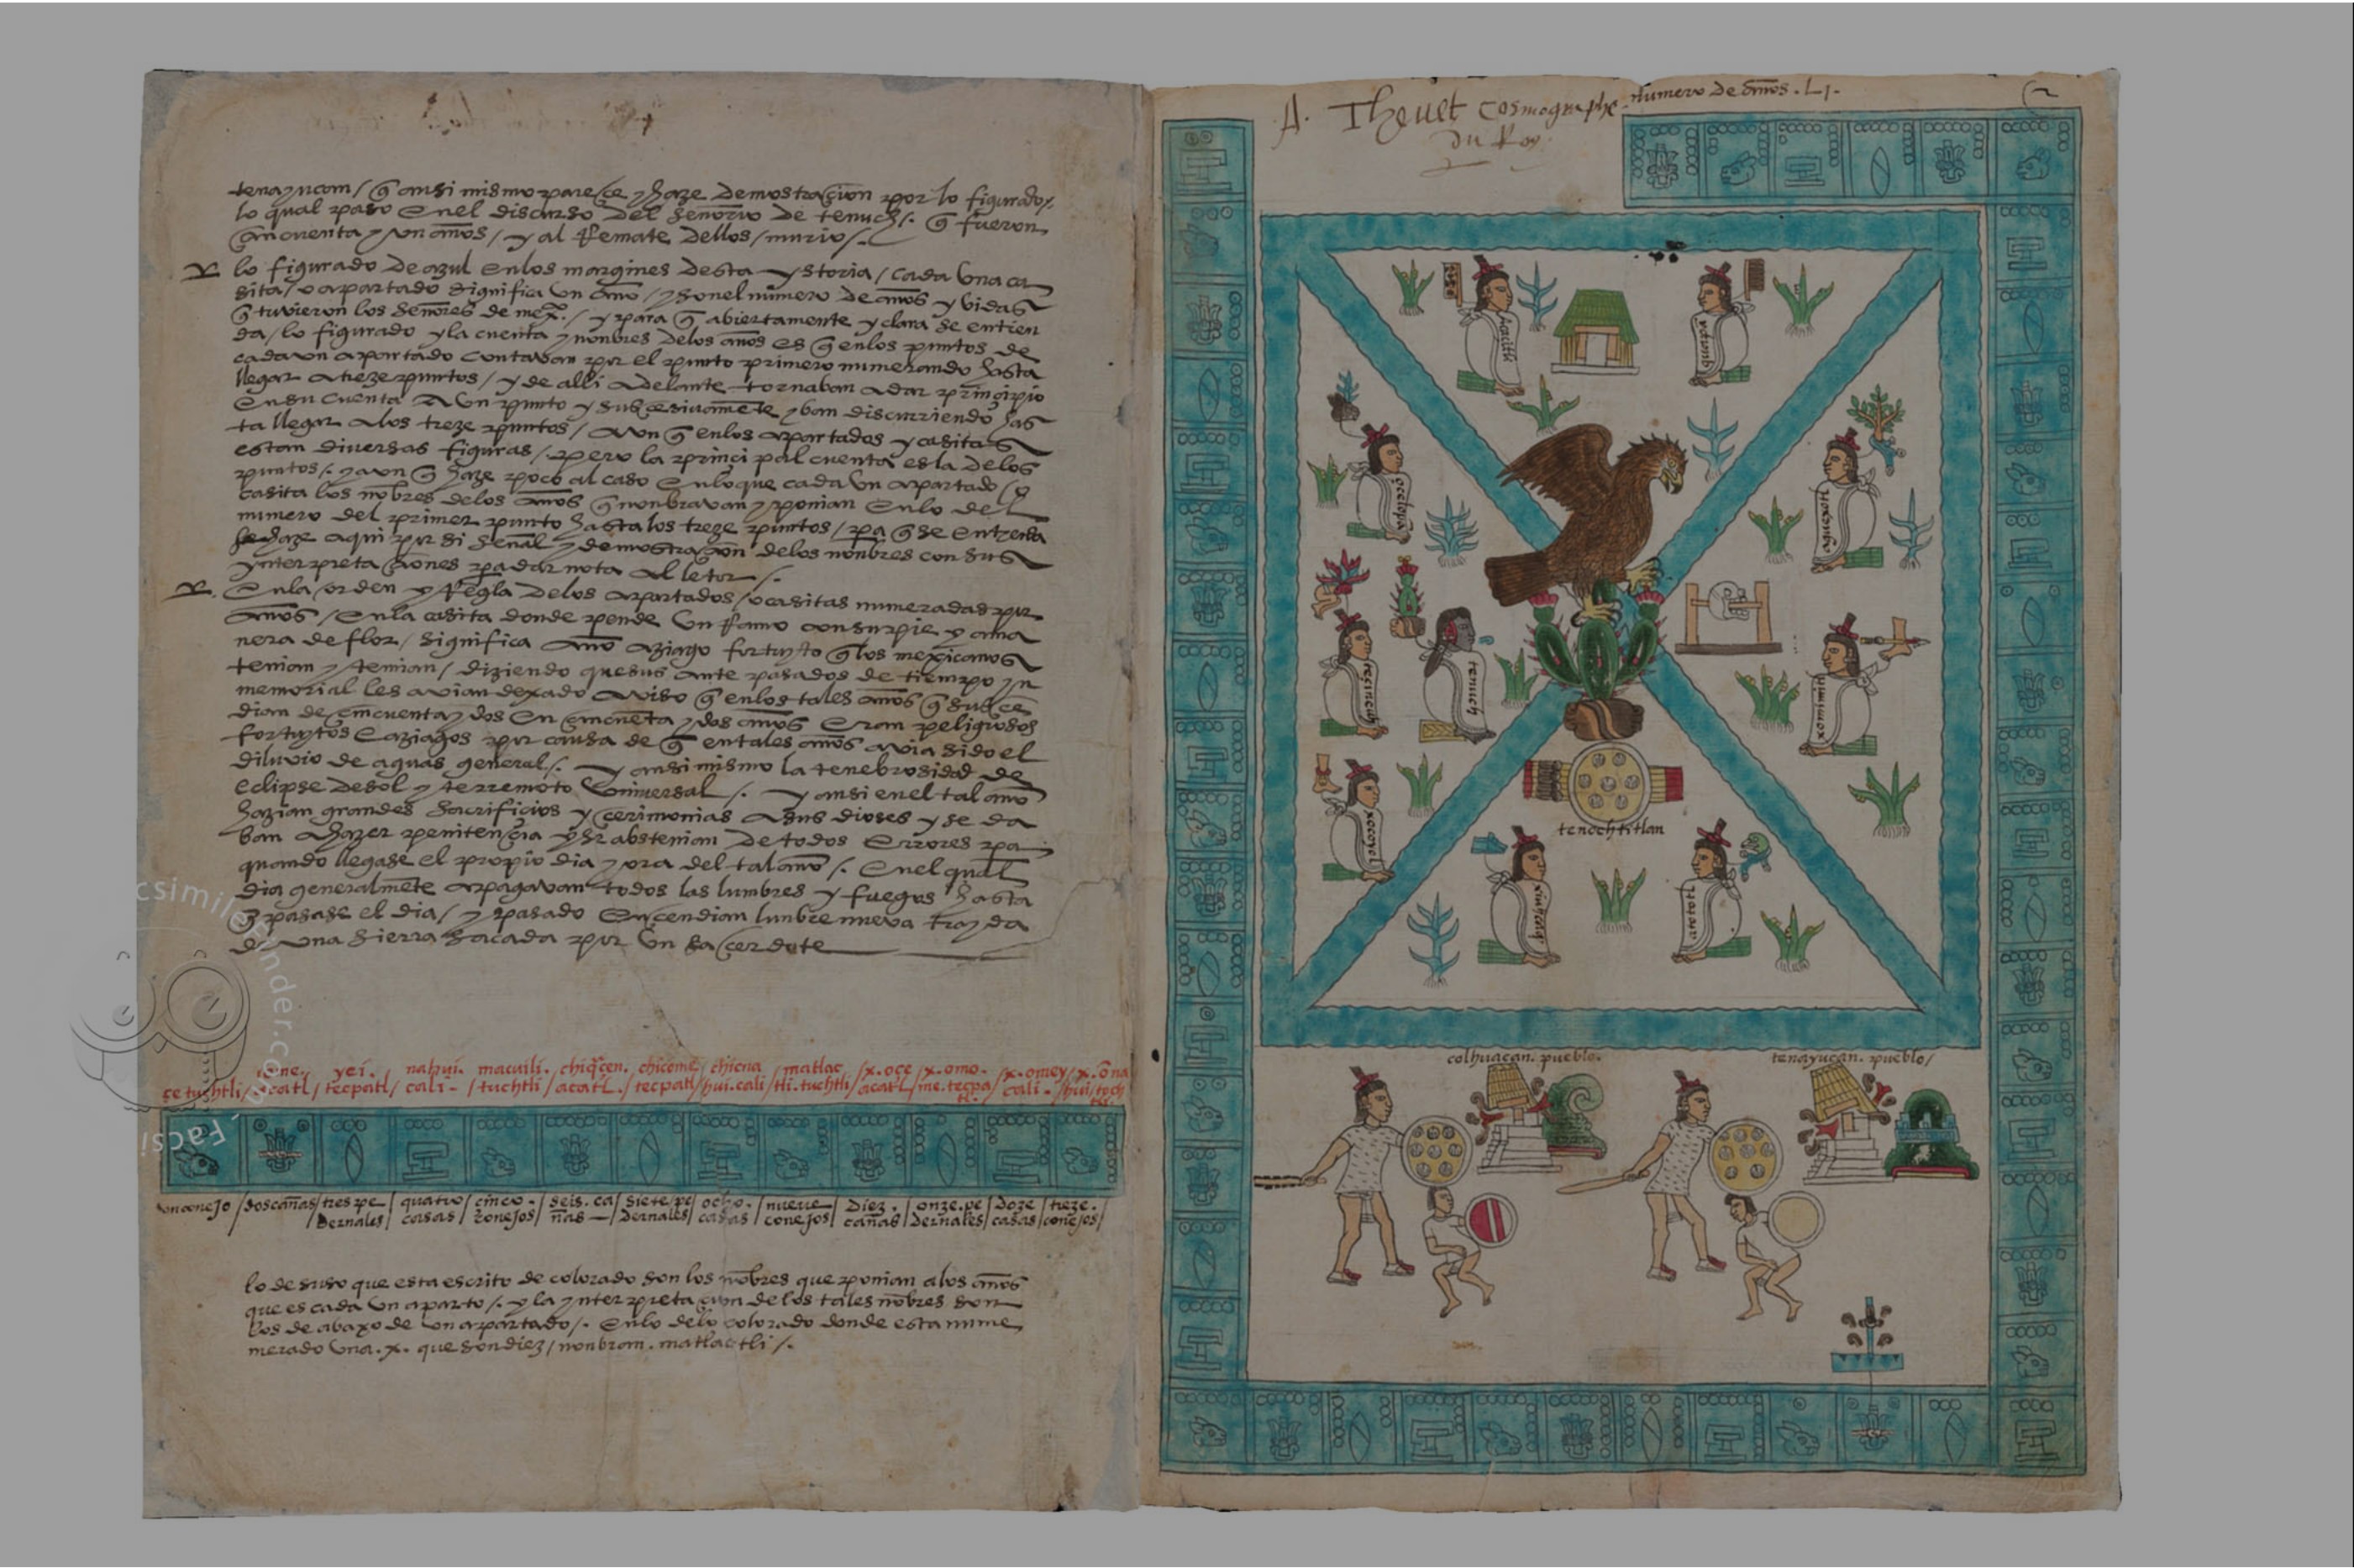 tenayucan / q̄ ansi mismo pareçe y haze demostraçion por lo figurado /.
lo qual paso en el discurso del señorio de tenuch /. q̄ fueron
çincuenta y un años / y al Remate dellos / murio /.
lo figurado de azul en los margines desta ystoria / cada una ca
sita / o apartado significa un año / y son el numero de años y vidas
q̄ tuvieron los señores de mexco. / y para q̄ abiertamente y clara se entien
da / lo figurado y la cuenta y nonbres de los años es q̄ en los puntos de
cada un apartado contavan por el punto primero numerando hasta
llegar a treze puntos / y de alli adelante tornaban a dar prinçipio
en su cuenta a un punto y subçesivamēte yban discurriendo has
ta llegar a los treze puntos / aun q̄ en los apartados y casitas
estan diversas figuras /. pero la prinçipal cuenta es la de los
puntos /. y aun q̄ haze poco al caso en lo que cada un apartado o
casita los nōbres de los años q̄ nonbravan y ponian en lo del
numero del primer punto hasta los treze puntos / pa q̄ se entienda
se haze aqui por si señal y demostraçon de los nonbres con sus
ynterpretaçiones pa dar nota al letor /.
En la orden y Regla de los apartados / o casitas numeradas por
años / en la casita donde pende un Ramo con su pie y a ma
nera de flor / significa año aziago fortuyto q̄ los mexicanos
tenian y temian / diziendo que sus ante pasados de tiempo yn
memorial les avian dexado aviso q̄ en los tales años q̄ subçe
dian de çincuenta y dos en çincuēta y dos años eran peligrosos
fortuytos e aziagos por causa de q̄ en tales años avia sido el
diluvio de aguas general /. y ansi mismo la tenebrosidad de
eclipse de sol y terremoto universal /. y ansi en el tal año
hazian grandes sacrifiçios y çerimonias a sus dioses y se da
ban a hazer penitençia y se abstenian de todos errores pa
quando llegase el propio dia y ora del tal año /. en el qual
dia generalmēte apagavan todos las lumbres y fuegos hasta
q̄ pasase el dia / y pasado ençendian lunbre nueva trayda
de una sierra sacada por un saçerdote
çe tuchtli / ome. acatl / yei. tecpatl / nahui. cali - / macuili. tuchtli / chiq̄çen. acatl. / chicome tecpatl / chicuahui. cali / matlactli. tuchtli / x. oçe acatl / x. omome. tecpatl. / x. omey cali - / x. ōnahui / tochtli.
un conejo / dos cañas / tres pedernales / quatro casas / çinco. conejos / seis. cañas — / siete. pedernales / ocho. casas / nueve conejos / diez. cañas / onze. pedernales / doze casas / treze. conejos /
lo de suso que esta escrito de colorado son los nōbres que ponian a los años
que es cada un aparto /. y la ynterpretaçion de los tales nōbres son
los de abaxo de un apartado /. en lo de lo colorado donde esta nume
merado una .x. que son diez / nonbran. matlactli /.
Facsimilefinder.com
A. Thevet Cosmographe
Du Roy
numero de años . LI .
acaçitli
quapan
oçelopā
ahuexotl
teçineuh
tenuch
xomimitl
xocoyol
tenochtitlan
xiuhcaq̄
atototl
colhuacan. pueblo.
tenayucan. pueblo /